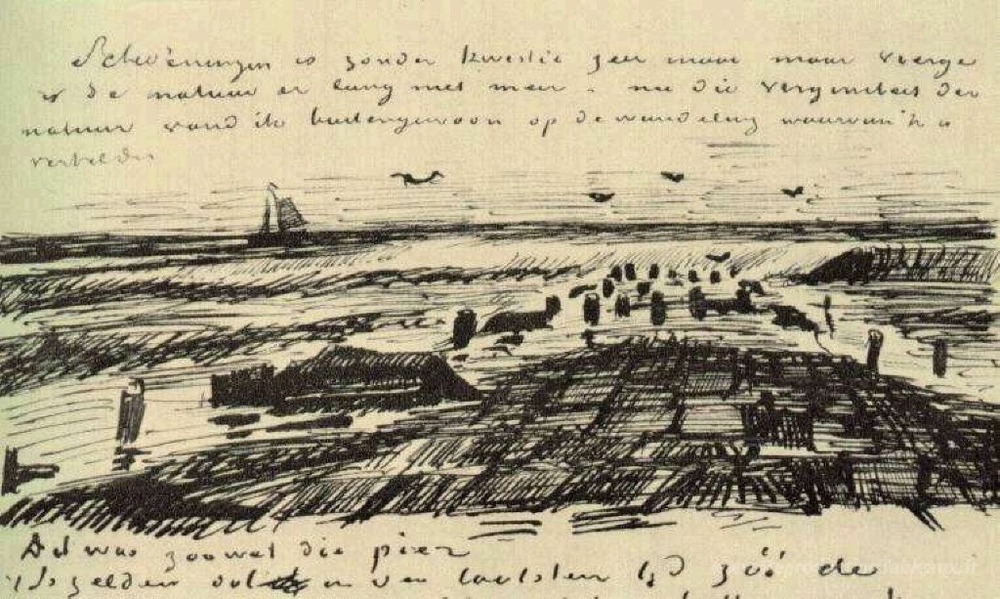 Scheveningen is zonder kwestie zeer mooi maar vierge
is de natuur er lang niet meer. nu die der
natuur vond ik buitengewoon op de wandeling waarvan ik u
vertelde
Dit was zoowat die pier
't Is zelden dat in den laatsten tijd zóó de